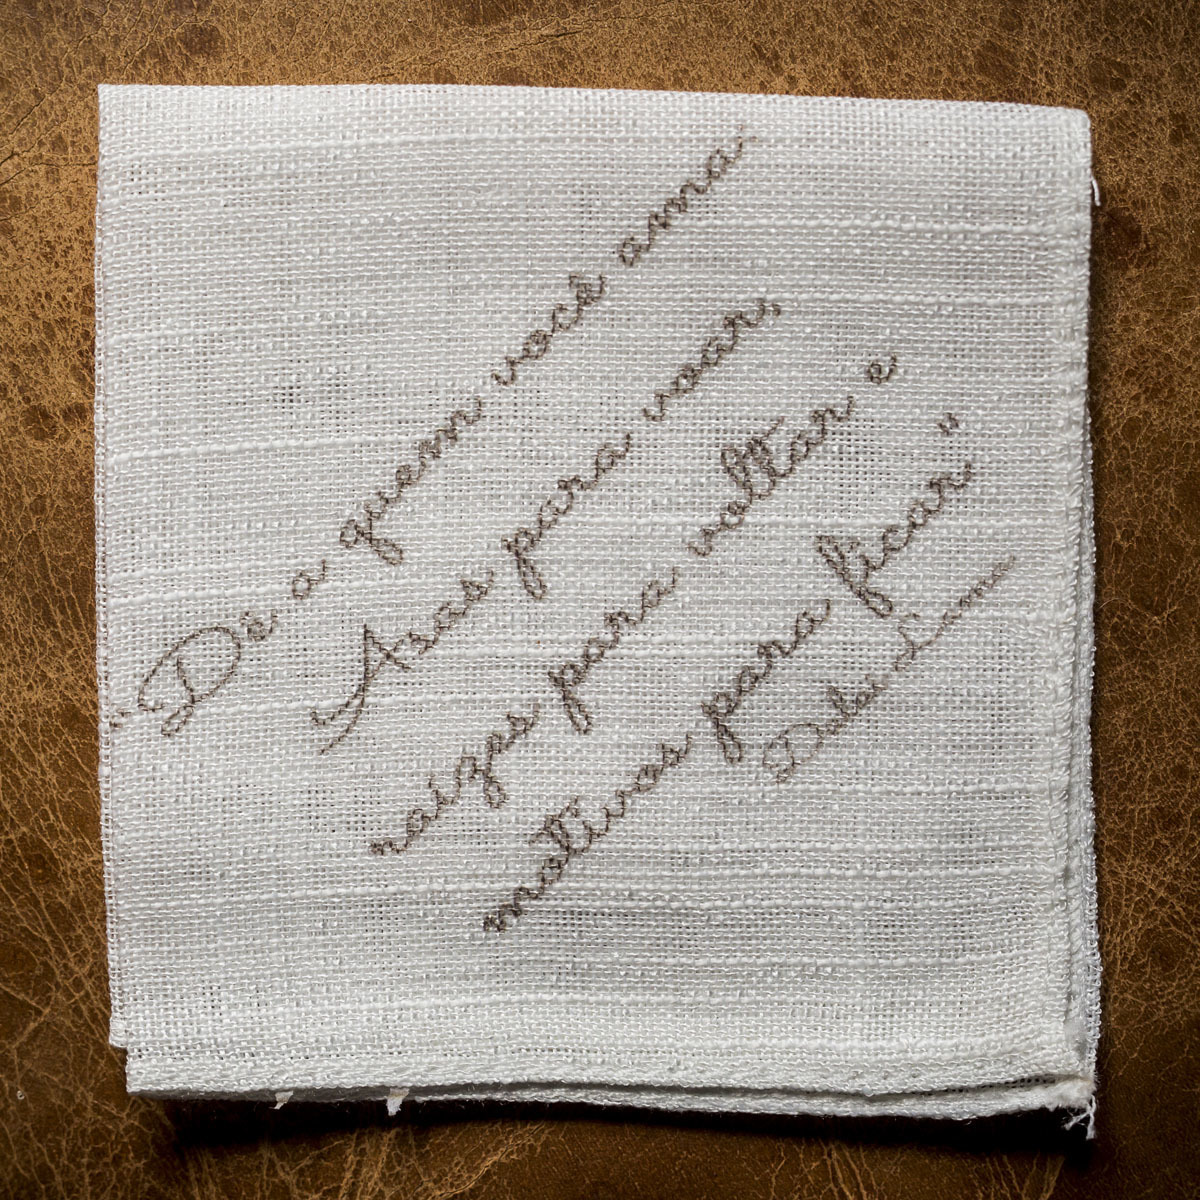 "De a quem você ama
Asas para voar,
raizes para voltar e
motivos para ficar"
Dalai Lama